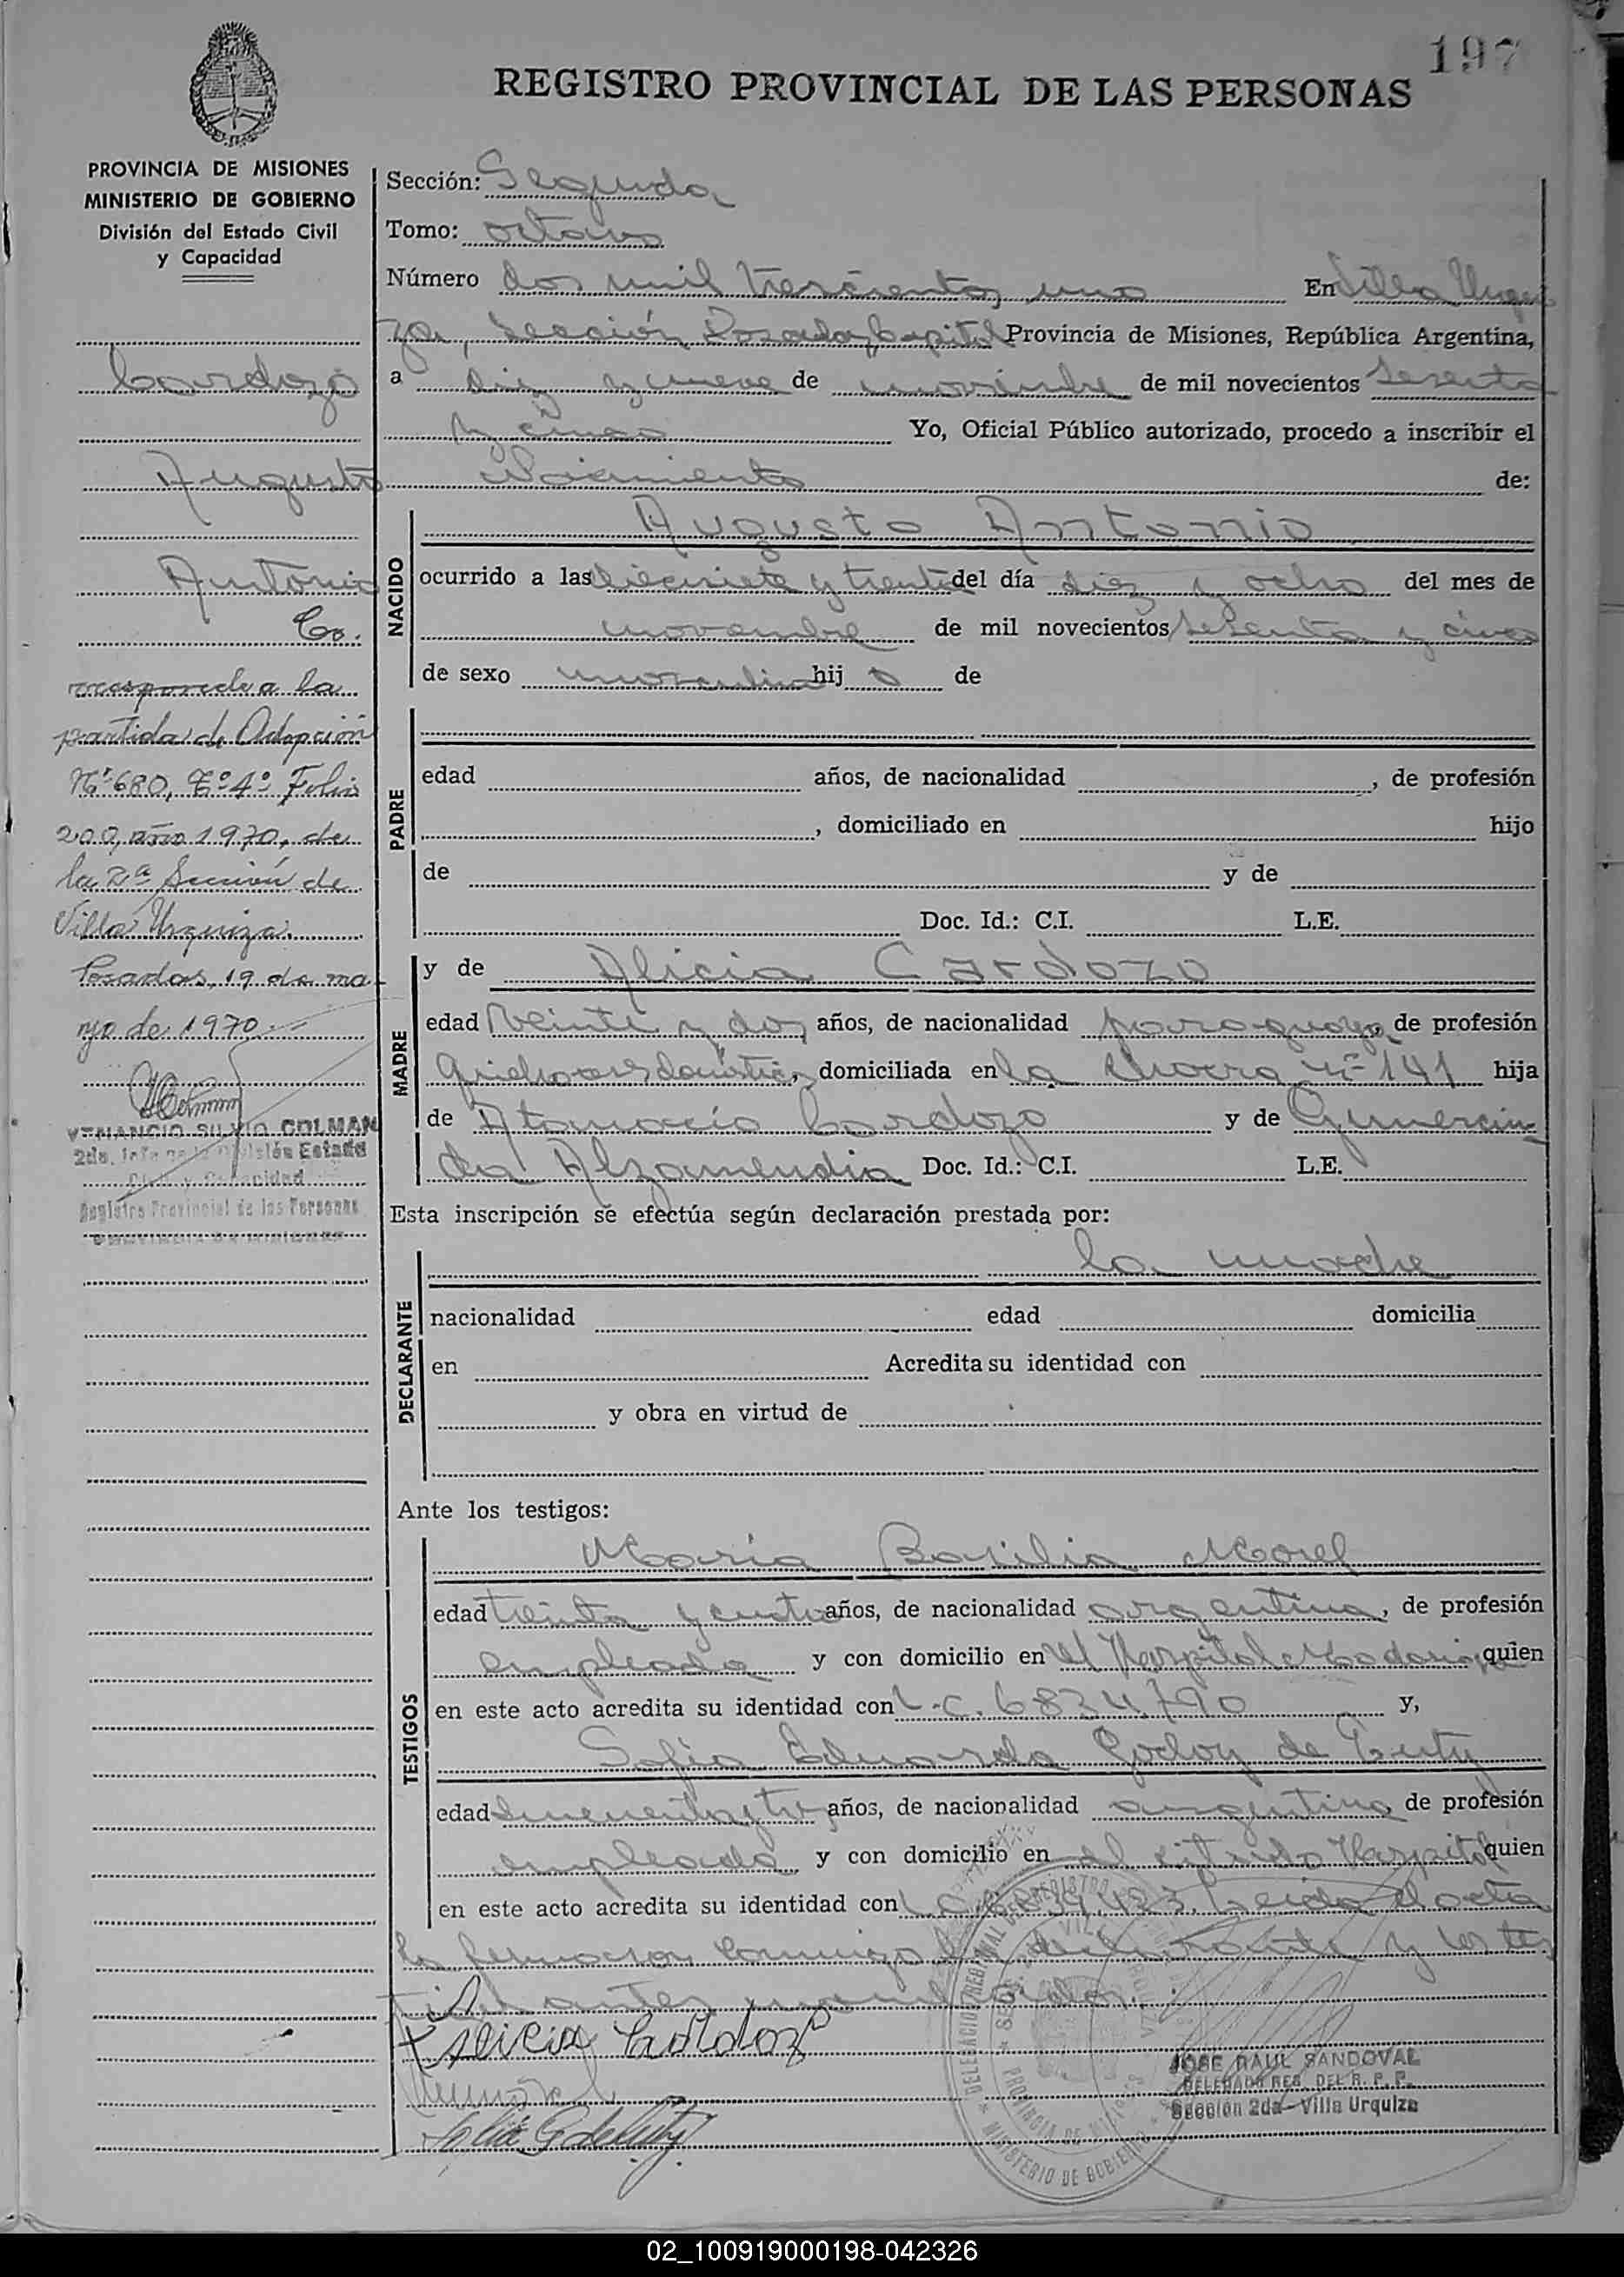 197
REGISTRO PROVINCIAL DE LAS PERSONAS
PROVINCIA DE MISIONES
MINISTERIO DE GOBIERNO
División del Estado Civil
y Capacidad
Cardozo
Augusto
Antonio
Co.
rresponde a la
partida de Adopción
Nº 680, Tº 4º Folio
200, año 1970, de
la 2ª Sección de
Villa Urquiza.
Posadas, 19 de ma
yo de 1970.-
VENANCIO SILVIO COLMAN
2do. Jefe de la División Estado
Civil y Capacidad
Registro Provincial de las Personas
PROVINCIA DE MISIONES
Sección: Segunda
Tomo: octavo
Número dos mil trescientos uno En Villa Urqui
za, Sección Posadas, Capital Provincia de Misiones, República Argentina,
a diez y nueve de noviembre de mil novecientos sesenta
y cinco Yo, Oficial Público autorizado, procedo a inscribir el
Nacimiento de:
NACIDO
Augusto Antonio
ocurrido a las diecisiete y treinta del día diez y ocho del mes de
noviembre de mil novecientos sesenta y cinco
de sexo masculino hij o de
PADRE
edad años, de nacionalidad , de profesión
, domiciliado en hijo
de y de
Doc. Id.: C.I. L.E.
MADRE
y de Alicia Cardozo
edad veinte y dos años, de nacionalidad paraguaya, de profesión
domiciliada en la Chacra nº 141 hija
de Atanacio Cardozo y de Gumercin
da Alzamendia Doc. Id.: C.I. L.E.
Esta inscripción se efectúa según declaración prestada por:
DECLARANTE
la madre
nacionalidad edad domicilia
en Acredita su identidad con
y obra en virtud de
Ante los testigos:
TESTIGOS
María Basilia Morel
edad treinta y cuatro años, de nacionalidad argentina, de profesión
empleada y con domicilio en el Hospital Madariaga quien
en este acto acredita su identidad con L.C. 6834.790 y,
Sofía Eduarda Godoy de
edad años, de nacionalidad argentina de profesión
empleada y con domicilio en el citado Hospital quien
en este acto acredita su identidad con L.C. Leida el acta
la firmaron conmigo la declarante y los tes
Alicia Cardozo
JOSE RAUL SANDOVAL
DELEGADO REG. DEL R. P. P.
Sección 2da- Villa Urquiza
02_100919000198-042326